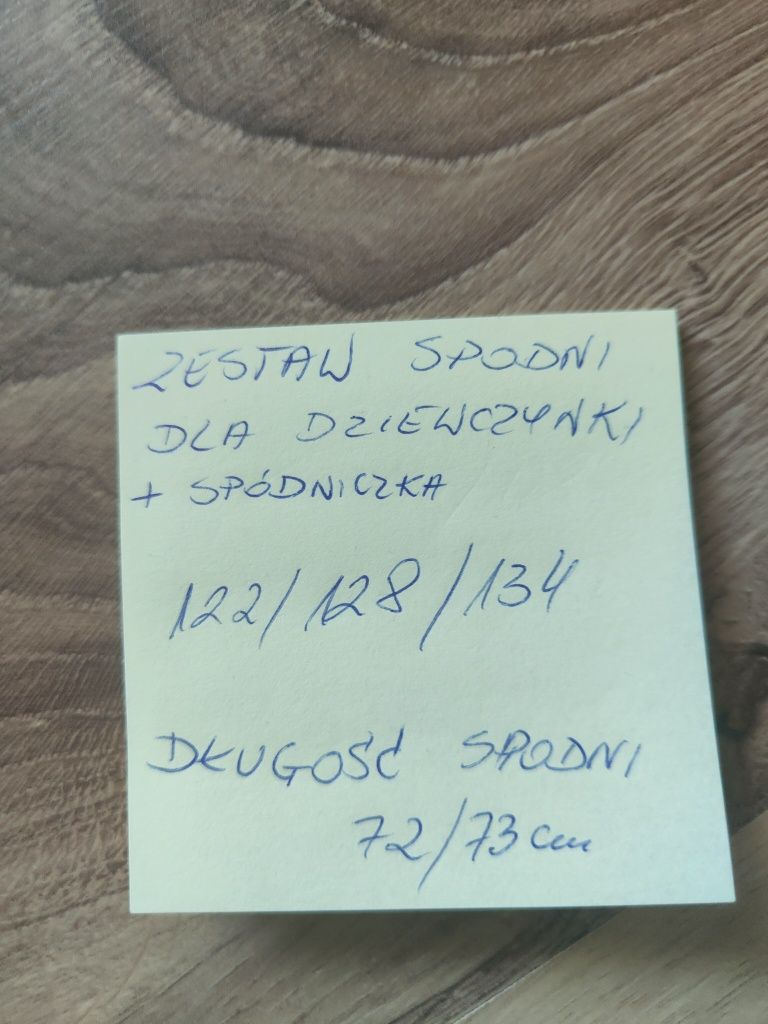 ZESTAW SPODNI
DLA DZIEWCZYNKI
+ SPÓDNICZKA
122/128/134
DŁUGOŚĆ SPODNI
72/73 cm